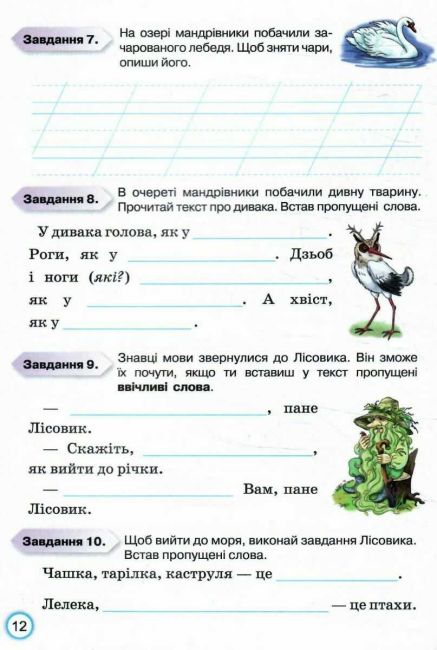 Завдання 7.
На озері мандрівники побачили за-
чарованого лебедя. Щоб зняти чари,
опиши його.
Завдання 8.
В очереті мандрівники побачили дивну тварину.
Прочитай текст про дивака. Встав пропущені слова.
У дивака голова, як у .
Роги, як у . Дзьоб
і ноги (які?) ,
як у . А хвіст,
як у .
Завдання 9.
Знавці мови звернулися до Лісовика. Він зможе
їх почути, якщо ти вставиш у текст пропущені
ввічливі слова.
— , пане
Лісовик.
— Скажіть, ,
як вийти до річки.
— Вам, пане
Лісовик.
Завдання 10.
Щоб вийти до моря, виконай завдання Лісовика.
Встав пропущені слова.
Чашка, тарілка, каструля — це .
Лелека, — це птахи.
12